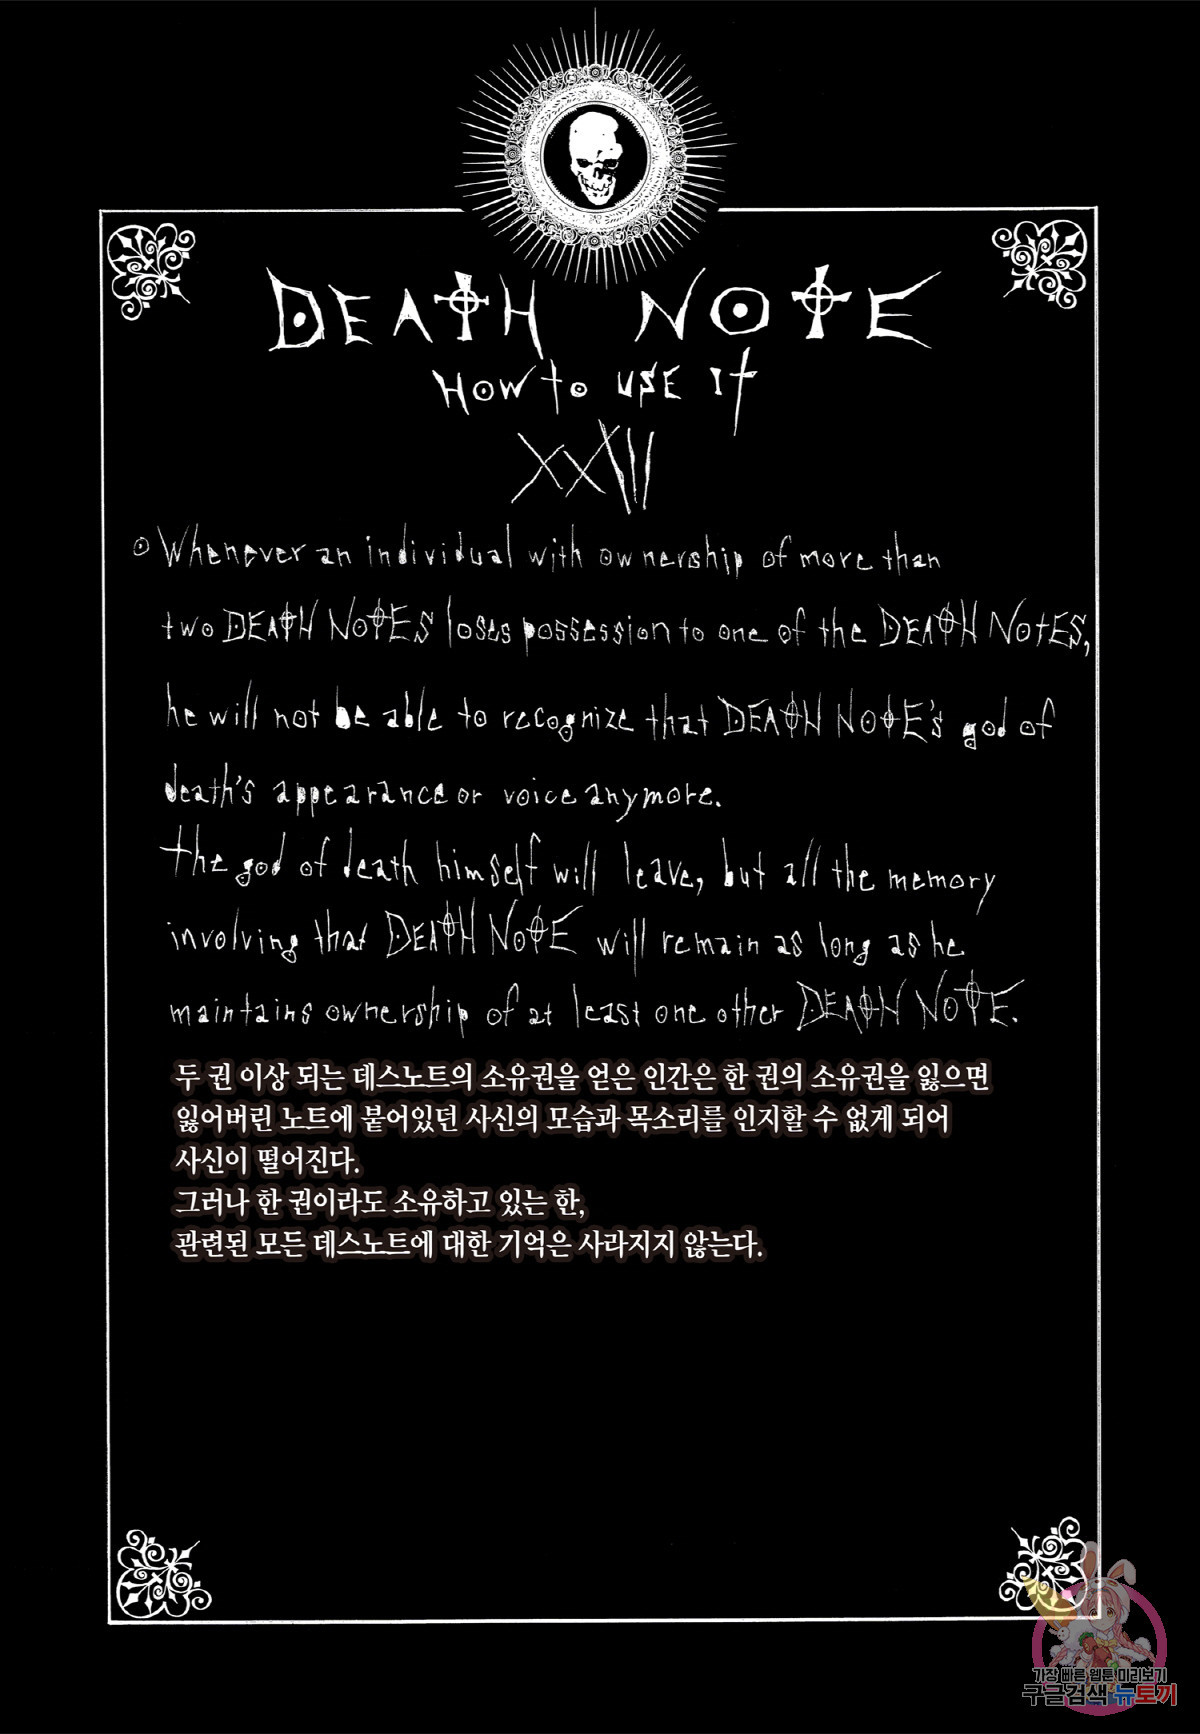 DEATH NOTE
HOW to USE It
XXIII
Whenever an individual with ownership of more than
two DEATH NOTES loses possession to one of the DEATH NOTES,
he will not be able to recognize that DEATH NOTE's god of
death's appearance or voice anymore.
The god of death himself will leave, but all the memory
involving that DEATH NOTE will remain as long as he
maintains ownership of at least one other DEATH NOTE.
두 권 이상 되는 데스노트의 소유권을 얻은 인간은 한 권의 소유권을 잃으면
잃어버린 노트에 붙어있던 사신의 모습과 목소리를 인지할 수 없게 되어
사신이 떨어진다.
그러나 한 권이라도 소유하고 있는 한,
관련된 모든 데스노트에 대한 기억은 사라지지 않는다.
가장 빠른 웹툰 미리보기
구글검색 뉴토끼